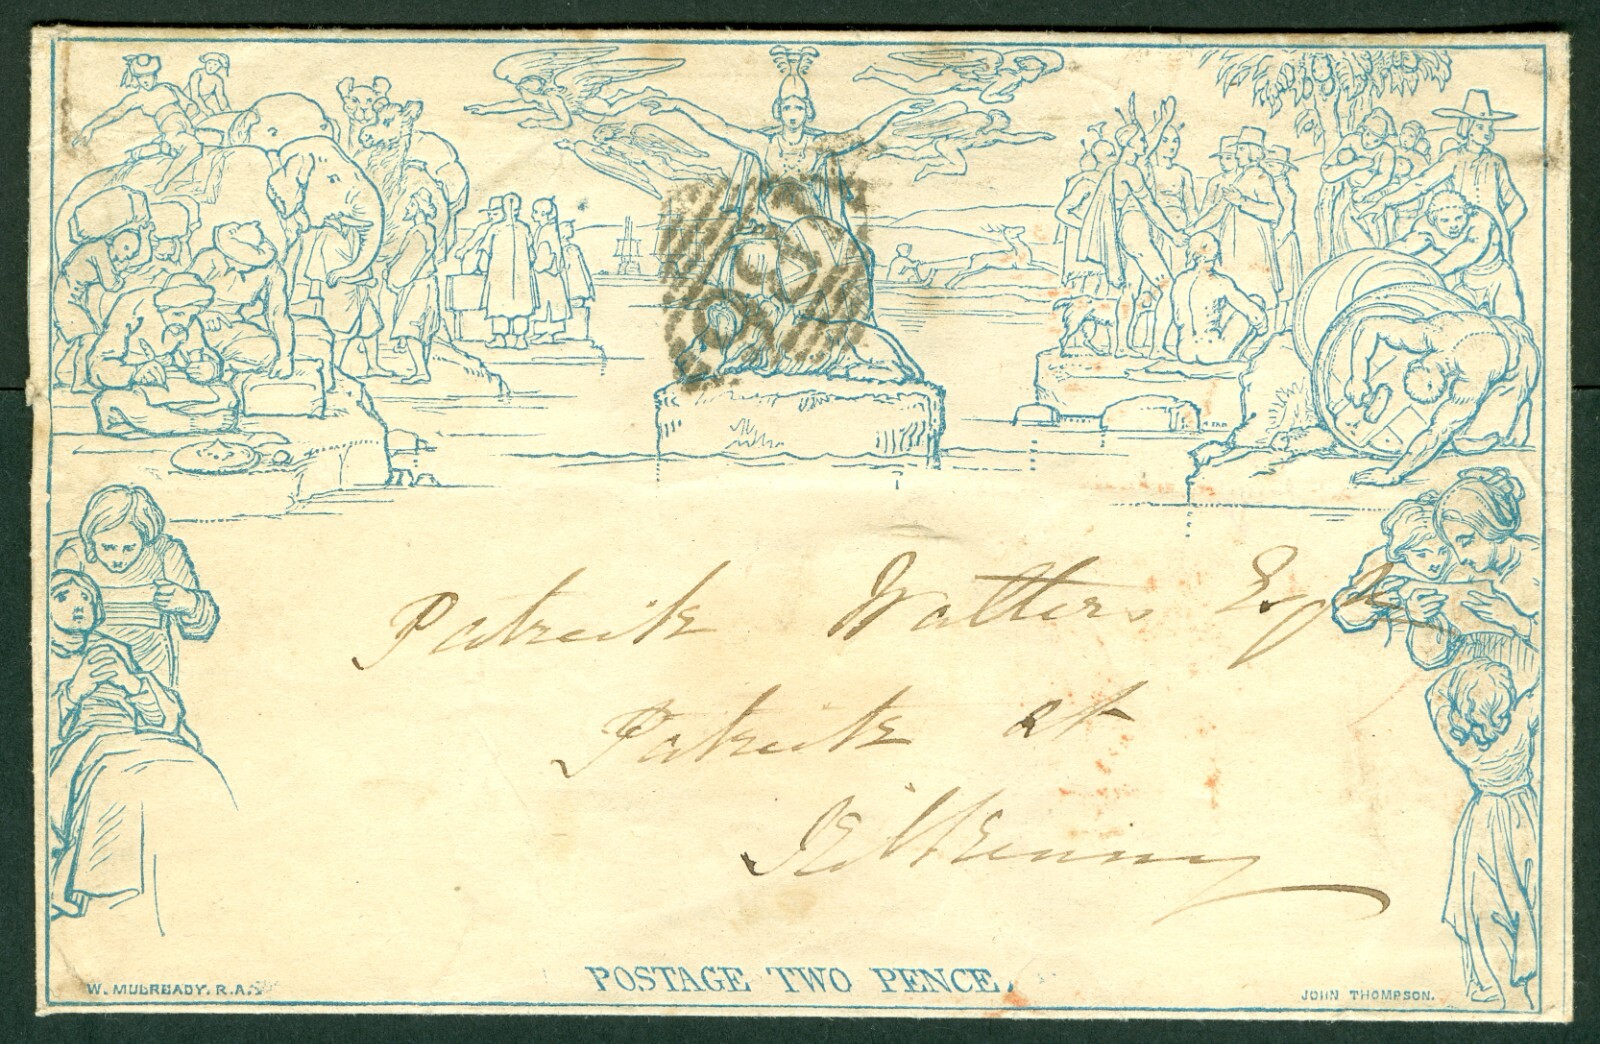 Patrick Watters Esqr
Patrick st
Kilkenny
POSTAGE TWO PENCE.
W. MULREADY. R.A.
JOHN THOMPSON.